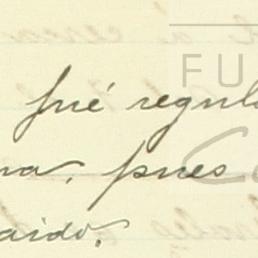 fué regula
na, pues
aido.
FU